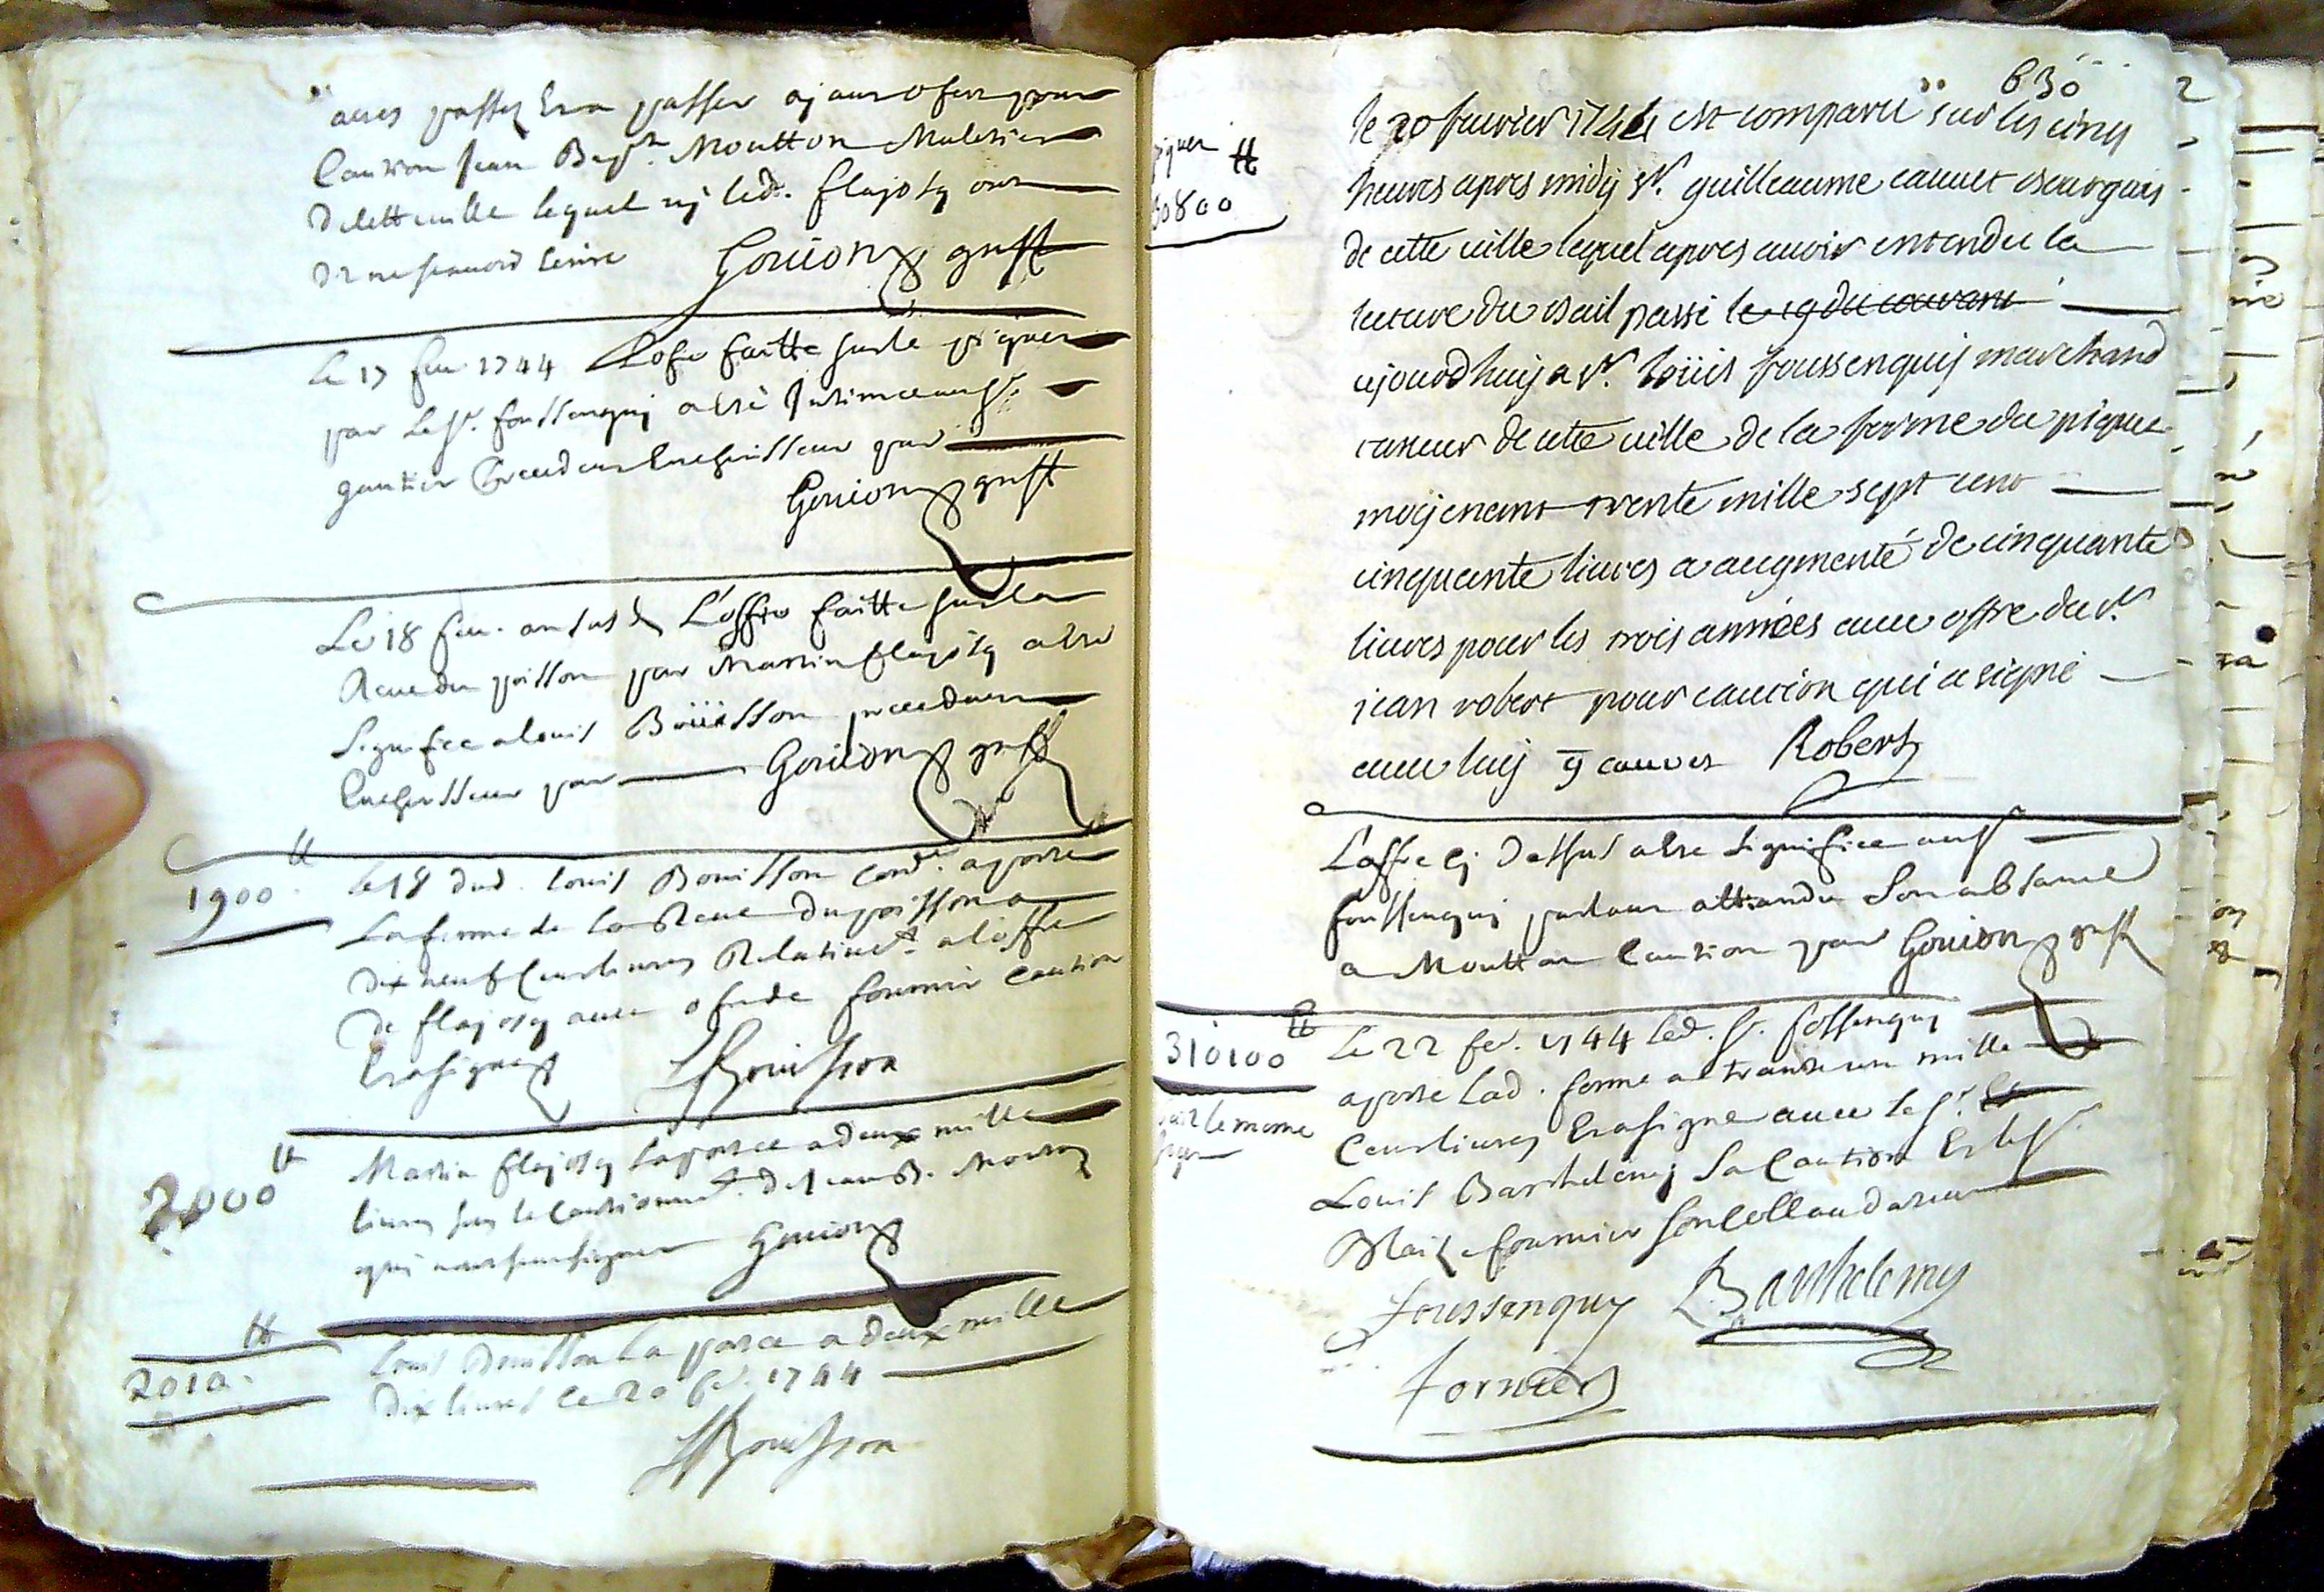 actes passez et a passer ayant offert pour
Caution Jean Bapte. Moutton Muletier
de cette ville lequel ny led. flayosq ont
de ne scavoir Ecrire Gouion greff
Le 17 feu 1744 L'ofre faitte sur le piquet
par Le sr. foussenquy a esté Intimee au sr.
gautier precedant Encherisseur par
Gouion greff
Le 18 feu. an sus d L'offre faitte sur la
Reue du poisson par Martin flayosq a esté
Signifiee a louis Boüisson precedant
Encherisseur par Gouion greff
1900 tt
le 18 dud. louis Bouisson Cord. a porté
La ferme de la Reue du poisson a
dix neuf Cent liures Relativet. a l'offre
de flayosq auec ofre de fournir Caution
Et a signé LBouisson
2000 tt
Martin flayosq la portée a deux mille
liures sous le Cautionnet. de Jean B. Mouton
qui n'ont sceu signer Gouion
2010 tt
Louis Bouisson la portée a deux mille
dix liures le 20 fer. 1744
LBouisson
630
2
piquet tt
30800
le 20 feurier 1744 est comparü sur les cinq
heures apres midÿ sr. guilleaume cauuet bourgois
de cette uille lequel apres auoir entendu la
lecture du bail passé le 19 du courant
ajourdhuij a sr. loüis foussenquij marchand
taneur de cette uille de la ferme du piquet
moijenent trente mille sept cent
cinquente liures a augmenté de cinquante
liures pour les trois années auec offre du sr.
jean robert pour caution qui a signé
auec luij g cauuet Robert
L'offre cy dessus a esté signifiee au sr
foussenquy parlant attandu son absance
a Moutton Caution par Gouion greff
310100 tt
Le 22 fer. 1744 led. sr. fossenquy
a porté lad. ferme a trante un mille
Cent liures Et a signé auec le sr.
Louis Barthelemy sa Caution Et le sr.
Blaise fournier son Collaudateur
sur le meme
foussenquy LBarthelemy
fornier